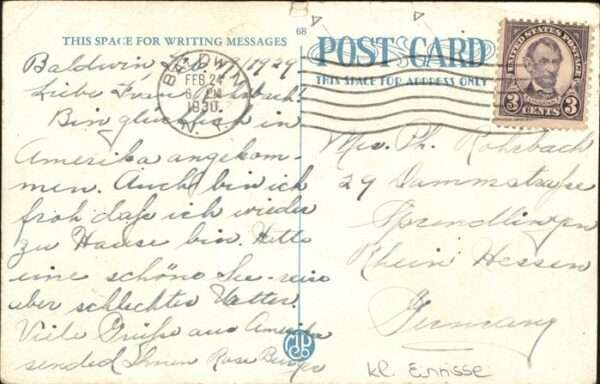 THIS SPACE FOR WRITING MESSAGES
68
POST CARD
THIS SPACE FOR ADDRESS ONLY
UNITED STATES POSTAGE
3 CENTS 3
BALDWIN
FEB 24
6 PM
1930
N. Y.
Baldwin 1929
Liebe Frau Rohrbach!
Bin glücklich in
Amerika angekom-
men. Auch bin ich
froh daß ich wieder
zu Hause bin. Hatte
eine schöne See-reise
aber schlechter Wetter.
Viele Grüße aus Amerika
sended Ihnen Rose
Mrs. Ph. Rohrbach
29 Dammstraße
Sprendlingen
Rhein Hessen
Germany
kl. Einrisse